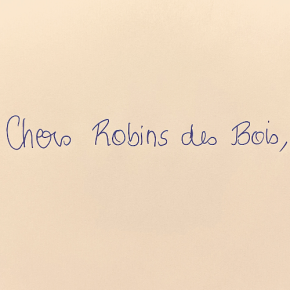 Chers Robins des Bois,